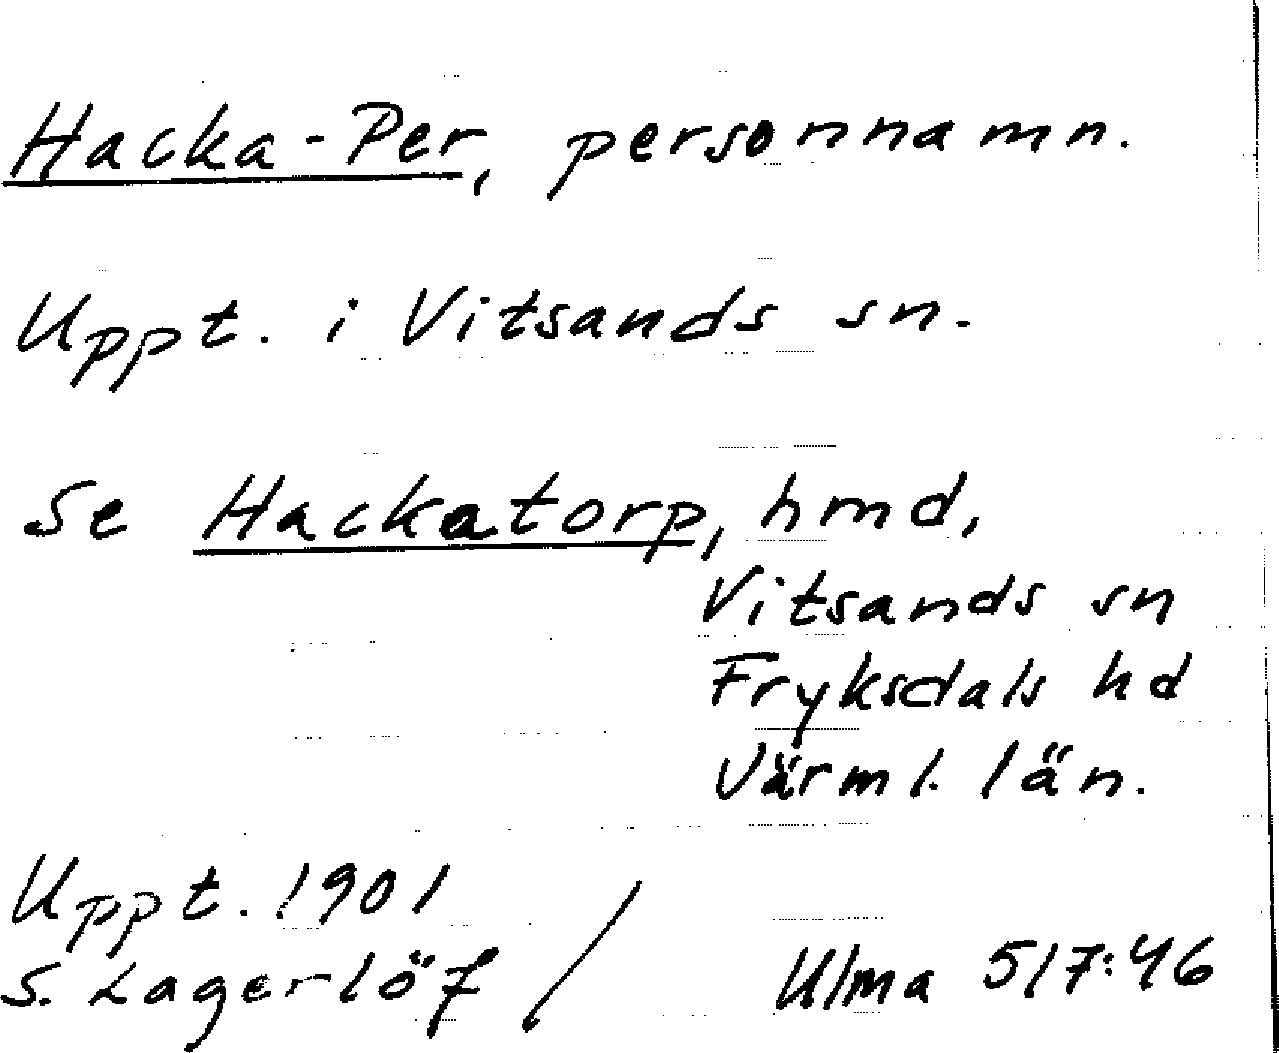 Hacka-Per, personnamn.
Uppt. i Vitsands sn.
Se Hackatorp, hmd,
Vitsands sn
Fryksdals hd
Värml. län.
Uppt. 1901
S. Lagerlöf / Ulma 517:46